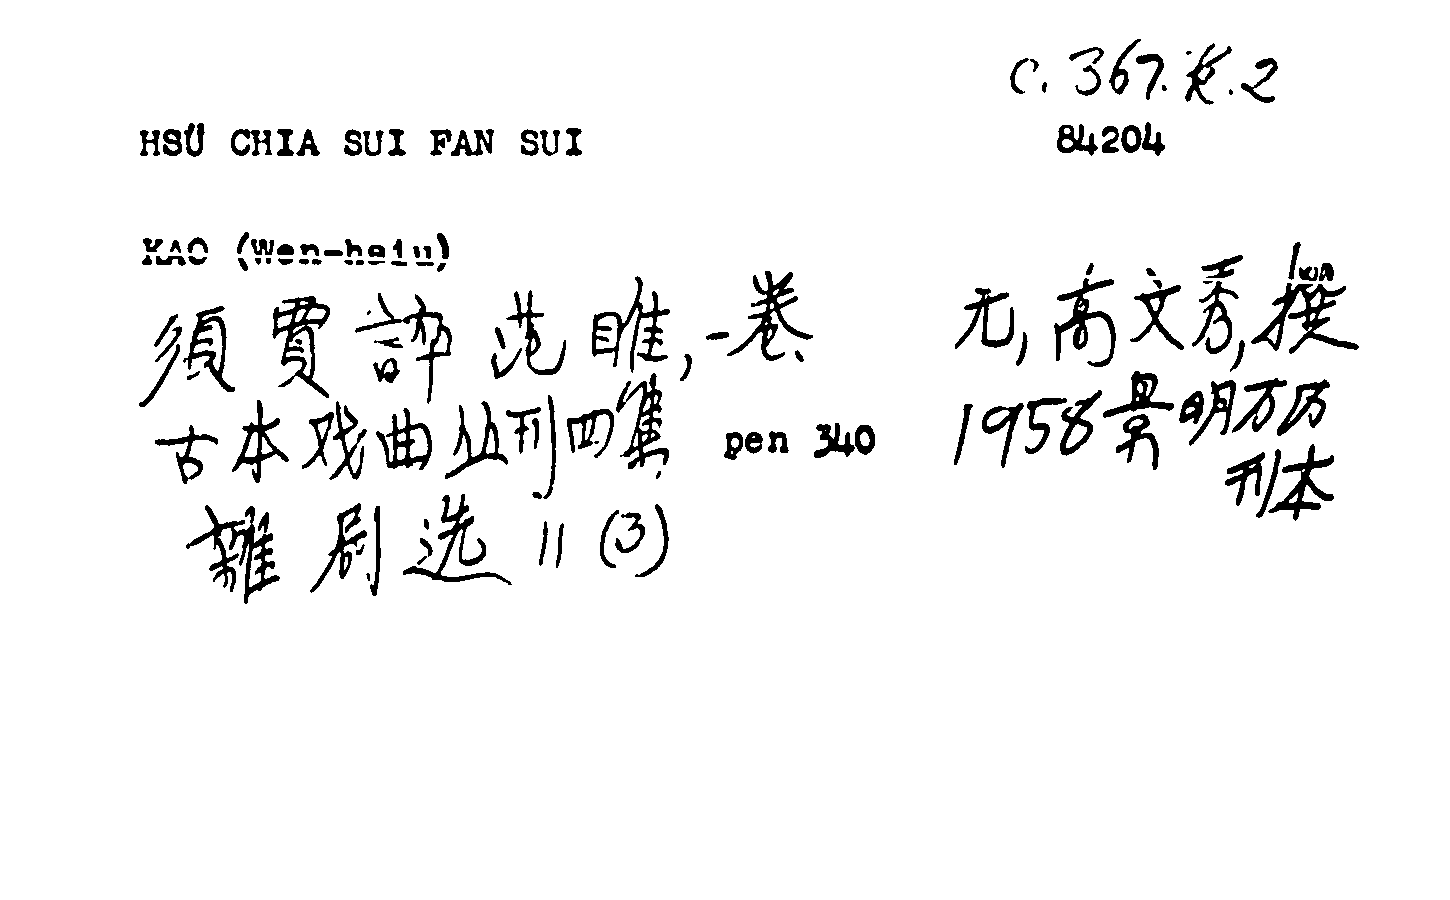 C. 367. K. 2
HSÜ CHIA SUI FAN SUI
84204
KAO (Wen-hsiu)
須賈誶范睢,一卷、
元,高文秀,撰
古本戏曲丛刊四集 pen 340
1958景明万历
刊本
雜剧选 11 (3)